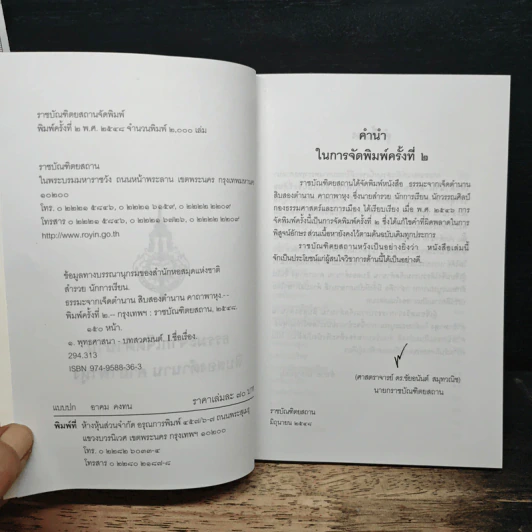 ราชบัณฑิตยสถานจัดพิมพ์
พิมพ์ครั้งที่ ๒ พ.ศ. ๒๕๔๘ จำนวนพิมพ์ ๒,๐๐๐ เล่ม
ราชบัณฑิตยสถาน
ในพระบรมมหาราชวัง ถนนหน้าพระลาน เขตพระนคร กรุงเทพมหานคร
๑๐๒๐๐
โทร. ๐ ๒๒๒๑ ๕๘๔๖, ๐ ๒๒๒๑ ๖๑๕๙, ๐ ๒๒๒๒ ๒๒๐๙
โทรสาร ๐ ๒๒๒๑ ๕๘๔๖, ๐ ๒๒๒๑ ๖๘๒๖, ๐ ๒๒๒๒ ๒๒๐๙
http://www.royin.go.th
ข้อมูลทางบรรณานุกรมของสำนักหอสมุดแห่งชาติ
สำรวย นักการเรียน.
ธรรมะจากเจ็ดตำนาน สิบสองตำนาน คาถาพาหุง.--
พิมพ์ครั้งที่ ๒.-- กรุงเทพฯ : ราชบัณฑิตยสถาน, ๒๕๔๘.
๑๕๐ หน้า.
๑. พุทธศาสนา - บทสวดมนต์. I.ชื่อเรื่อง.
294.313
ISBN 974-9588-36-3
ราคาเล่มละ ๗๐ บาท
แบบปก อาคม คงทน
พิมพ์ที่ ห้างหุ้นส่วนจำกัด อรุณการพิมพ์ ๔๕๗/๖-๗ ถนนพระสุเมรุ
แขวงบวรนิเวศ เขตพระนคร กรุงเทพฯ ๑๐๒๐๐
โทร. ๐ ๒๒๘๒ ๖๐๓๓-๔
โทรสาร ๐ ๒๒๘๐ ๒๑๘๗-๘
คำนำ
ในการจัดพิมพ์ครั้งที่ ๒
ราชบัณฑิตยสถานได้จัดพิมพ์หนังสือ ธรรมะจากเจ็ดตำนาน
สิบสองตำนาน คาถาพาหุง ซึ่งนายสำรวย นักการเรียน นักวรรณศิลป์
กองธรรมศาสตร์และการเมือง ได้เรียบเรียง เมื่อ พ.ศ. ๒๕๔๖ การ
จัดพิมพ์ครั้งนี้เป็นการจัดพิมพ์ครั้งที่ ๒ ซึ่งได้แก้ไขคำที่ผิดพลาดในการ
พิสูจน์อักษร ส่วนเนื้อหายังคงไว้ตามต้นฉบับเดิมทุกประการ
ราชบัณฑิตยสถานหวังเป็นอย่างยิ่งว่า หนังสือเล่มนี้
จักเป็นประโยชน์แก่ผู้สนใจวิชาการด้านนี้ได้เป็นอย่างดี.
(ศาสตราจารย์ ดร.ชัยอนันต์ สมุทวณิช)
นายกราชบัณฑิตยสถาน
ราชบัณฑิตยสถาน
มิถุนายน ๒๕๔๘